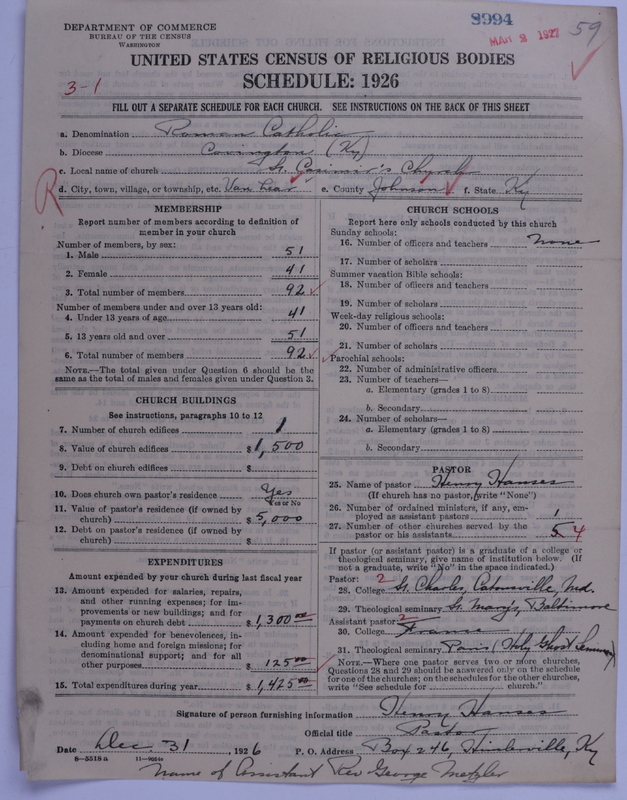 DEPARTMENT OF COMMERCE
BUREAU OF THE CENSUS
WASHINGTON
8994
MAR 2 1927
59
UNITED STATES CENSUS OF RELIGIOUS BODIES
SCHEDULE: 1926
3-1
FILL OUT A SEPARATE SCHEDULE FOR EACH CHURCH. SEE INSTRUCTIONS ON THE BACK OF THIS SHEET
a. Denomination Roman Catholic
b. Diocese Covington (Ky)
c. Local name of church St. Casimir's Church
d. City, town, village, or township, etc. Van Lear e. County Johnson f. State Ky
R
MEMBERSHIP
Report number of members according to definition of member in your church
Number of members, by sex:
1. Male 51
2. Female 41
3. Total number of members 92
Number of members under and over 13 years old:
4. Under 13 years of age 41
5. 13 years old and over 51
6. Total number of members 92
NOTE.—The total given under Question 6 should be the same as the total of males and females given under Question 3.
CHURCH BUILDINGS
See instructions, paragraphs 10 to 12
7. Number of church edifices 1
8. Value of church edifices $ 1,500
9. Debt on church edifices $
10. Does church own pastor's residence Yes
Yes or No
11. Value of pastor's residence (if owned by church) $ 5,000
12. Debt on pastor's residence (if owned by church) $
EXPENDITURES
Amount expended by your church during last fiscal year
13. Amount expended for salaries, repairs, and other running expenses; for improvements or new buildings; and for payments on church debt $ 1,300 00
14. Amount expended for benevolences, including home and foreign missions; for denominational support; and for all other purposes $ 125 00
15. Total expenditures during year $ 1,425 00
CHURCH SCHOOLS
Report here only schools conducted by this church
Sunday schools:
16. Number of officers and teachers None
17. Number of scholars
Summer vacation Bible schools:
18. Number of officers and teachers
19. Number of scholars
Week-day religious schools:
20. Number of officers and teachers
21. Number of scholars
Parochial schools:
22. Number of administrative officers
23. Number of teachers—
a. Elementary (grades 1 to 8)
b. Secondary
24. Number of scholars—
a. Elementary (grades 1 to 8)
b. Secondary
PASTOR
25. Name of pastor Henry Hanses
(If church has no pastor, write "None")
26. Number of ordained ministers, if any, employed as assistant pastors 1
27. Number of other churches served by the pastor or his assistants 5 4
If pastor (or assistant pastor) is a graduate of a college or theological seminary, give name of institution below. (If not a graduate, write "No" in the space indicated.)
Pastor: 2
28. College St. Charles, Catonsville, Md.
29. Theological seminary St. Mary's, Baltimore
Assistant pastor: 2
30. College France
31. Theological seminary Paris (Holy Ghost Seminary)
NOTE.—Where one pastor serves two or more churches, Questions 28 and 29 should be answered only on the schedule for one of the churches; on the schedules for the other churches, write "See schedule for church."
Signature of person furnishing information Henry Hanses
Official title Pastor
Date Dec. 31, 1926 P. O. Address Box 246, Himlerville, Ky
8—5518a
Name of Assistant Rev George Metzler